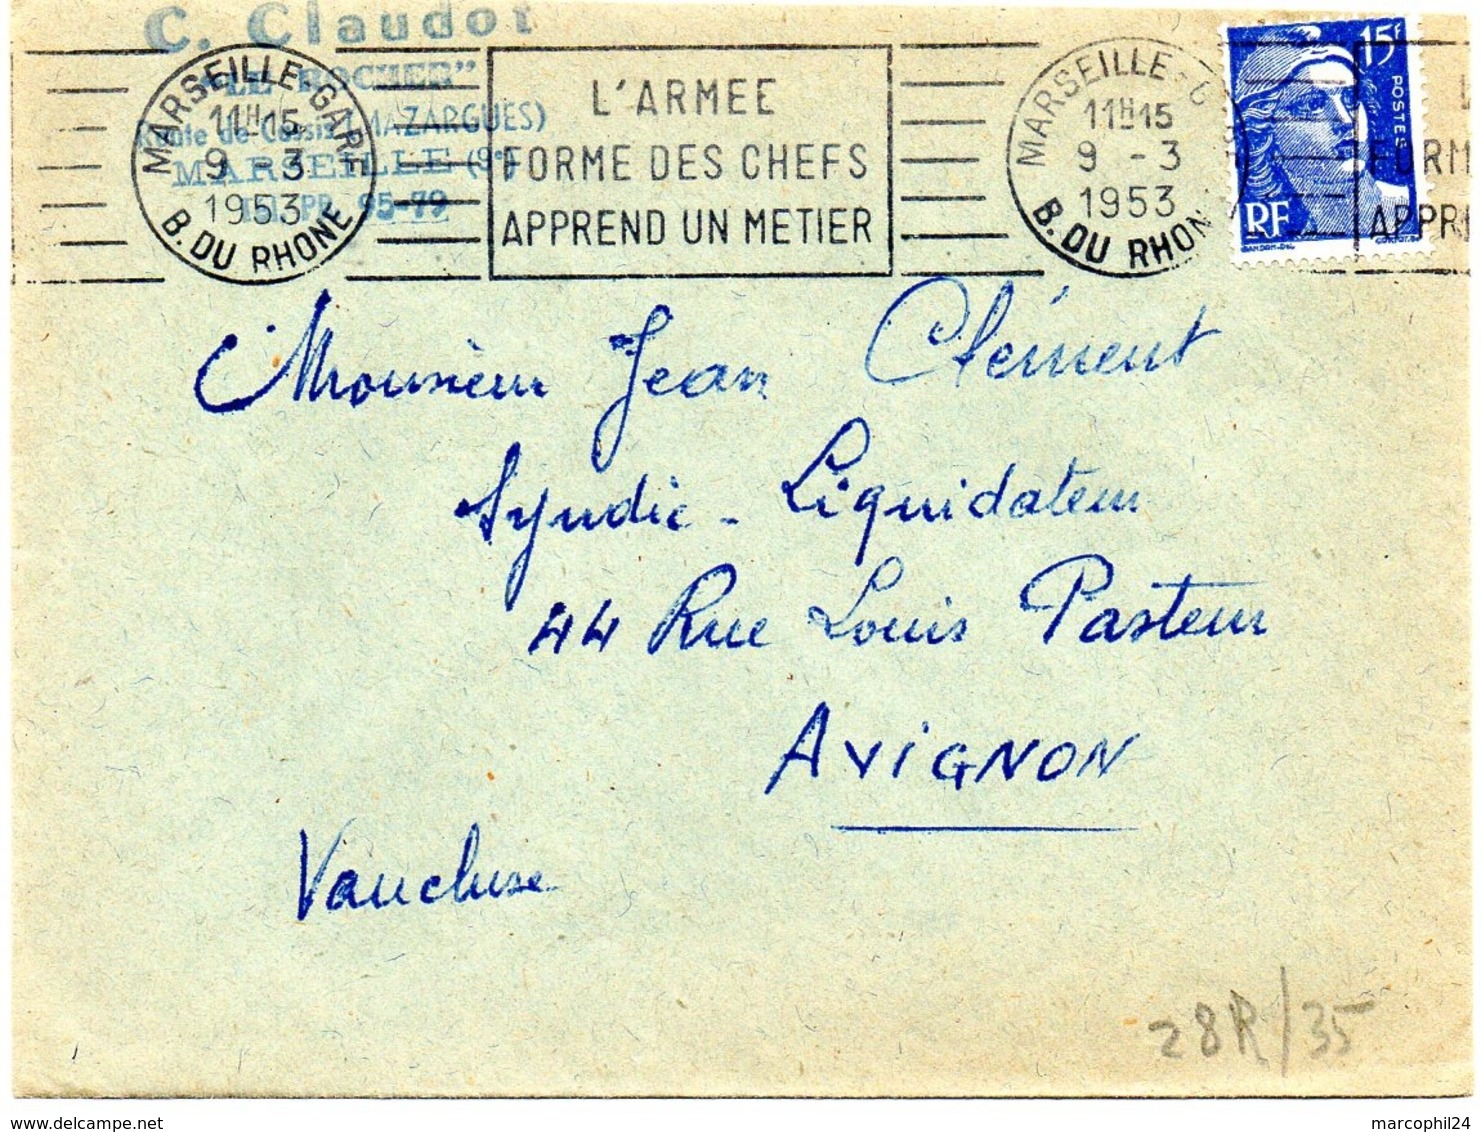 C. Claudot
"LE ROCHER"
Route de Cassis (MAZARGUES)
MARSEILLE (9e)
95-79
MARSEILLE-GARE
11H15
9 -3
1953
B. DU RHONE
L'ARMEE
FORME DES CHEFS
APPREND UN METIER
MARSEILLE-G
11H15
9 -3
1953
B. DU RHON
15F
POSTES
RF
L
FORM
APPRE
Monsieur Jean Clément
Syndic - Liquidateur
44 Rue Louis Pasteur
AVIGNON
Vaucluse
28R/35
marcophil24